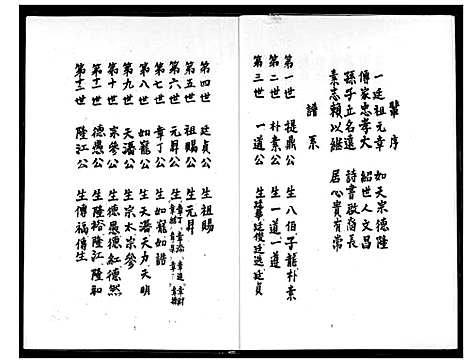 輩序
一廷祖元章 如天宗德隆
傳家忠孝大 紹世人文昌
孫子立名遠 詩書啟裔長
素志賴以繼 居心貴有常
譜系
第一世 提鼎公 生 八伯子龍朴素
第二世 朴素公 生 一道一遵
第三世 一道公 生 廷華廷俊廷選廷貞
第四世 廷貞公 生 祖賜
第五世 祖賜公 生 元昇
第六世 元昇公 生
第七世 章丁公 生 如龍如譜
第八世 如龍公 生 天潘天力天明
第九世 天潘公 生 宗太宗參
第十世 宗參公 生 德愚德紅德然
第十一世 德愚公 生 隆裕隆江隆和
第十二世 隆江公 生 傳福傳生